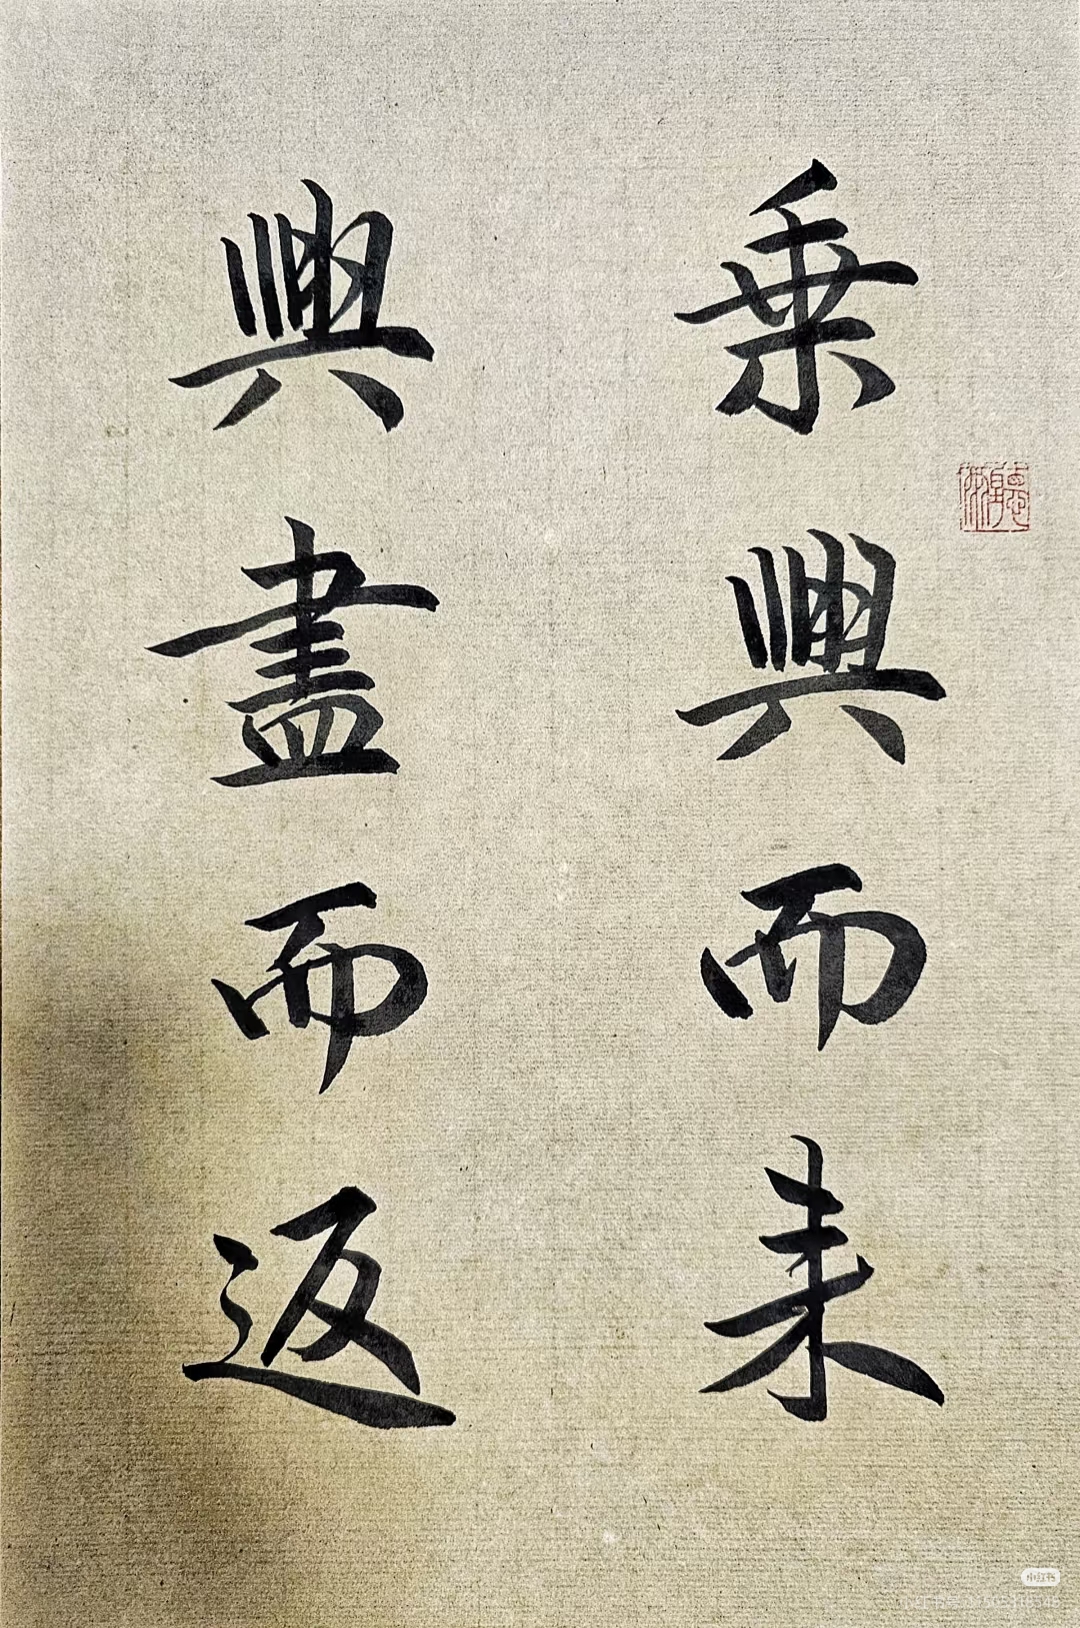 乗興而来
興盡而返
小红书